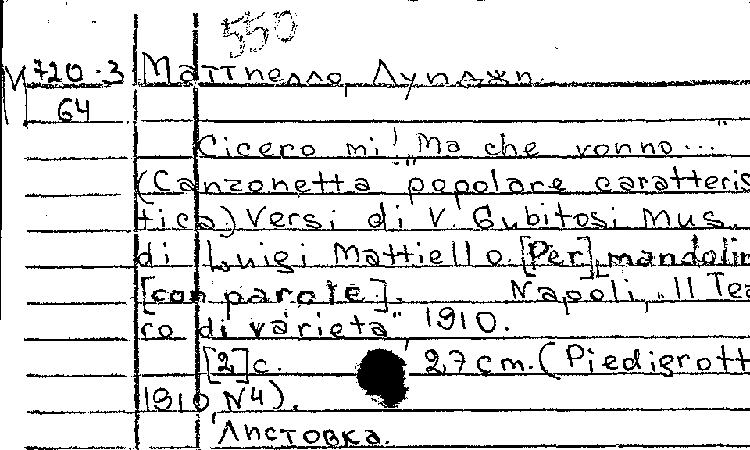 550
М 720-3 Маттиелло, Луиджи.
64
Cicero mi! "Ma che vonno..."
(Canzonetta popolare caratteris
tica) Versi di V. Gubitosi Mus.
di Luigi Mattiello. [Per] mandolin
[con parole]. Napoli, "Il Tea
ro di varietà" 1910.
[2] c. 27 cm. (Piedigrott
1910, N4).
Листовка.